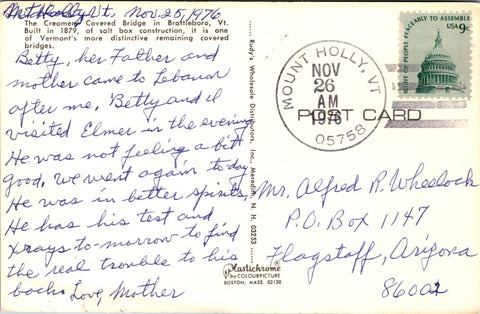 Mt Holly Vt. Nov. 25, 1976
The Creamery Covered Bridge in Brattleboro, Vt.
Built in 1879, of salt box construction, it is one
of Vermont's more distinctive remaining covered
bridges.
Betty, her Father and
mother came to Lebanon
after me, Betty and I
visited Elmer in the evening
He was not feeling a bitt
good, we went again today
He was in better spirits,
He has his test and
Xrays to-morrow to find
the real trouble to his
back. Love, Mother
Rudy's Wholesale Distributors, Inc. Meredith, N. H. 03253
Plastichrome®
by COLOURPICTURE
BOSTON, MASS. 02130
MOUNT HOLLY, VT
NOV
26
AM
1976
05758
POST CARD
OF PEOPLE PEACEABLY TO ASSEMBLE
USA 9c
Mr. Alfred R. Wheelock
P.O. Box 1147
Flagstaff, Arizona
86002